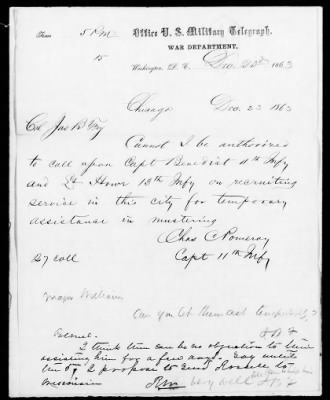 Time 5 PM
Office U. S. Military Telegraph,
15
WAR DEPARTMENT,
Washington, D. C. Dec. 23d 1863
Chicago Dec. 23 1863
Col Jas B Fry
Cannot I be authorized
to call upon Capt Benedict 4th Infy
and Lt Howe 13th Infy on recruiting
service in this city for temporary
assistance in mustering
Chas C Pomeroy
Capt 11th Infy
37 coll
Major Williams
Can you let them act temporarily?
J B F
Colonel.
I think there can be no objection to their
assisting him for a few days. Say until
the 5th, I propose to send to
Wisconsin
very well J B F